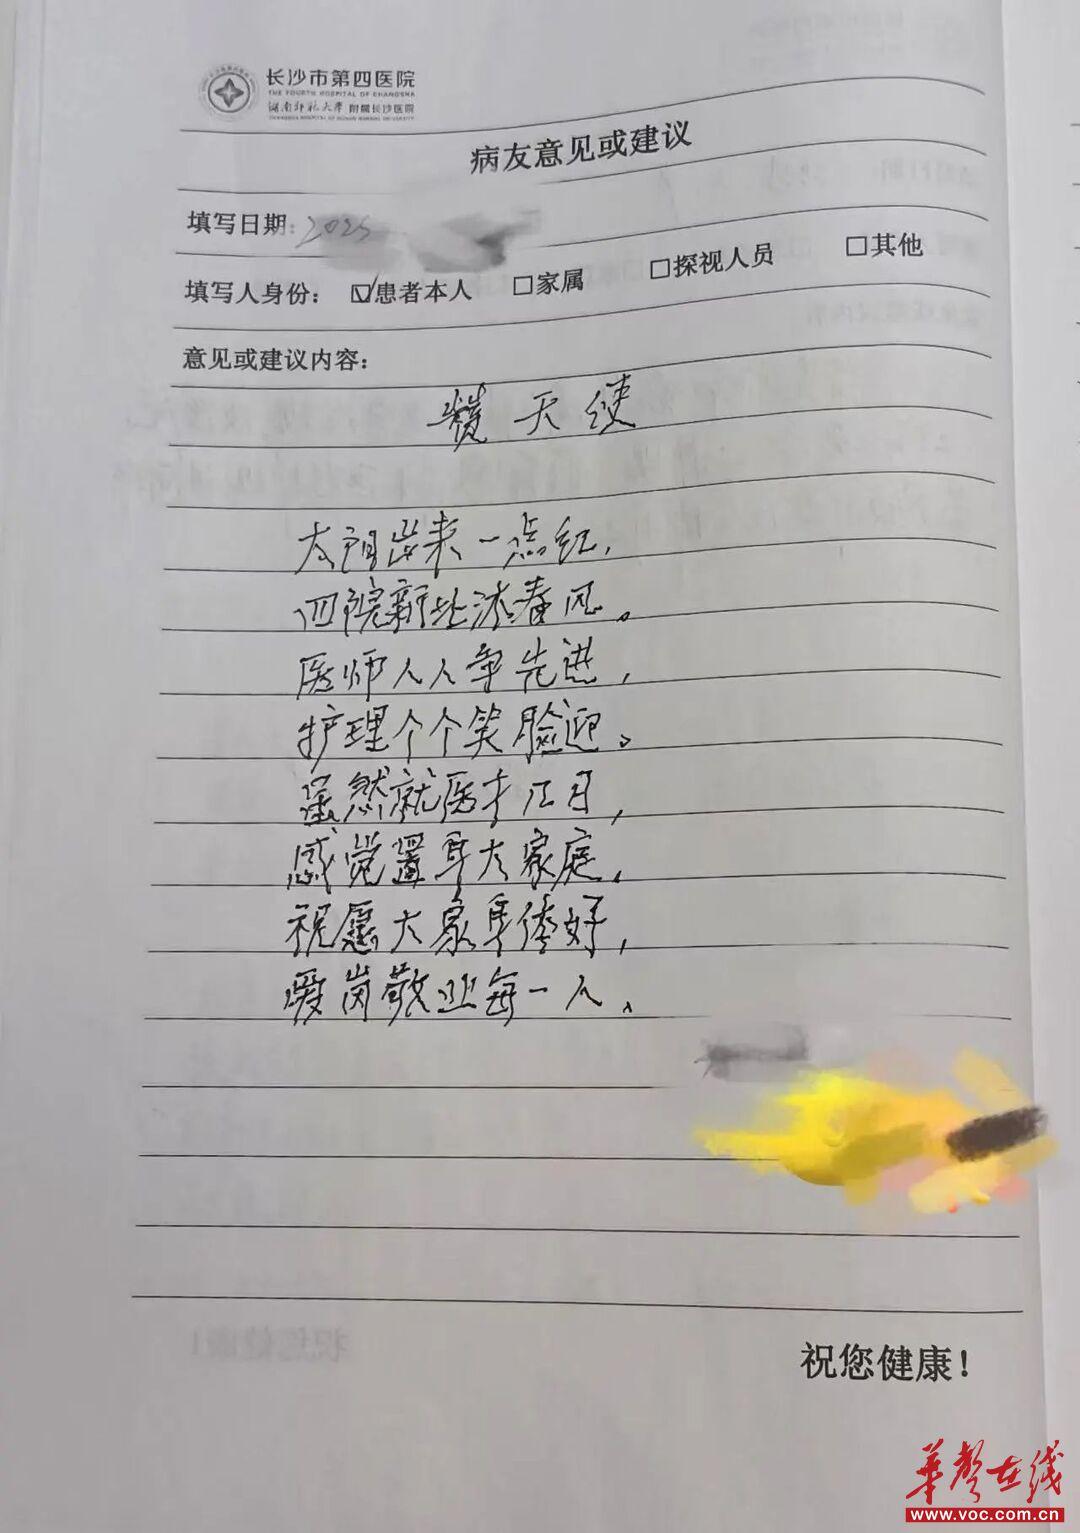 长沙市第四医院
THE FOURTH HOSPITAL OF CHANGSHA
湖南师范大学 附属长沙医院
CHANGSHA HOSPITAL OF HUNAN NORMAL UNIVERSITY
病友意见或建议
填写日期: 2025
填写人身份: ☑患者本人 □家属 □探视人员 □其他
意见或建议内容:
赞天使
太阳出来一点红,
四院新址沐春风。
医师人人争先进,
护理个个笑脸迎。
虽然就医才几日,
感觉置身大家庭,
祝愿大家身体好,
爱岗敬业每一人.
祝您健康!
华声在线
www.voc.com.cn